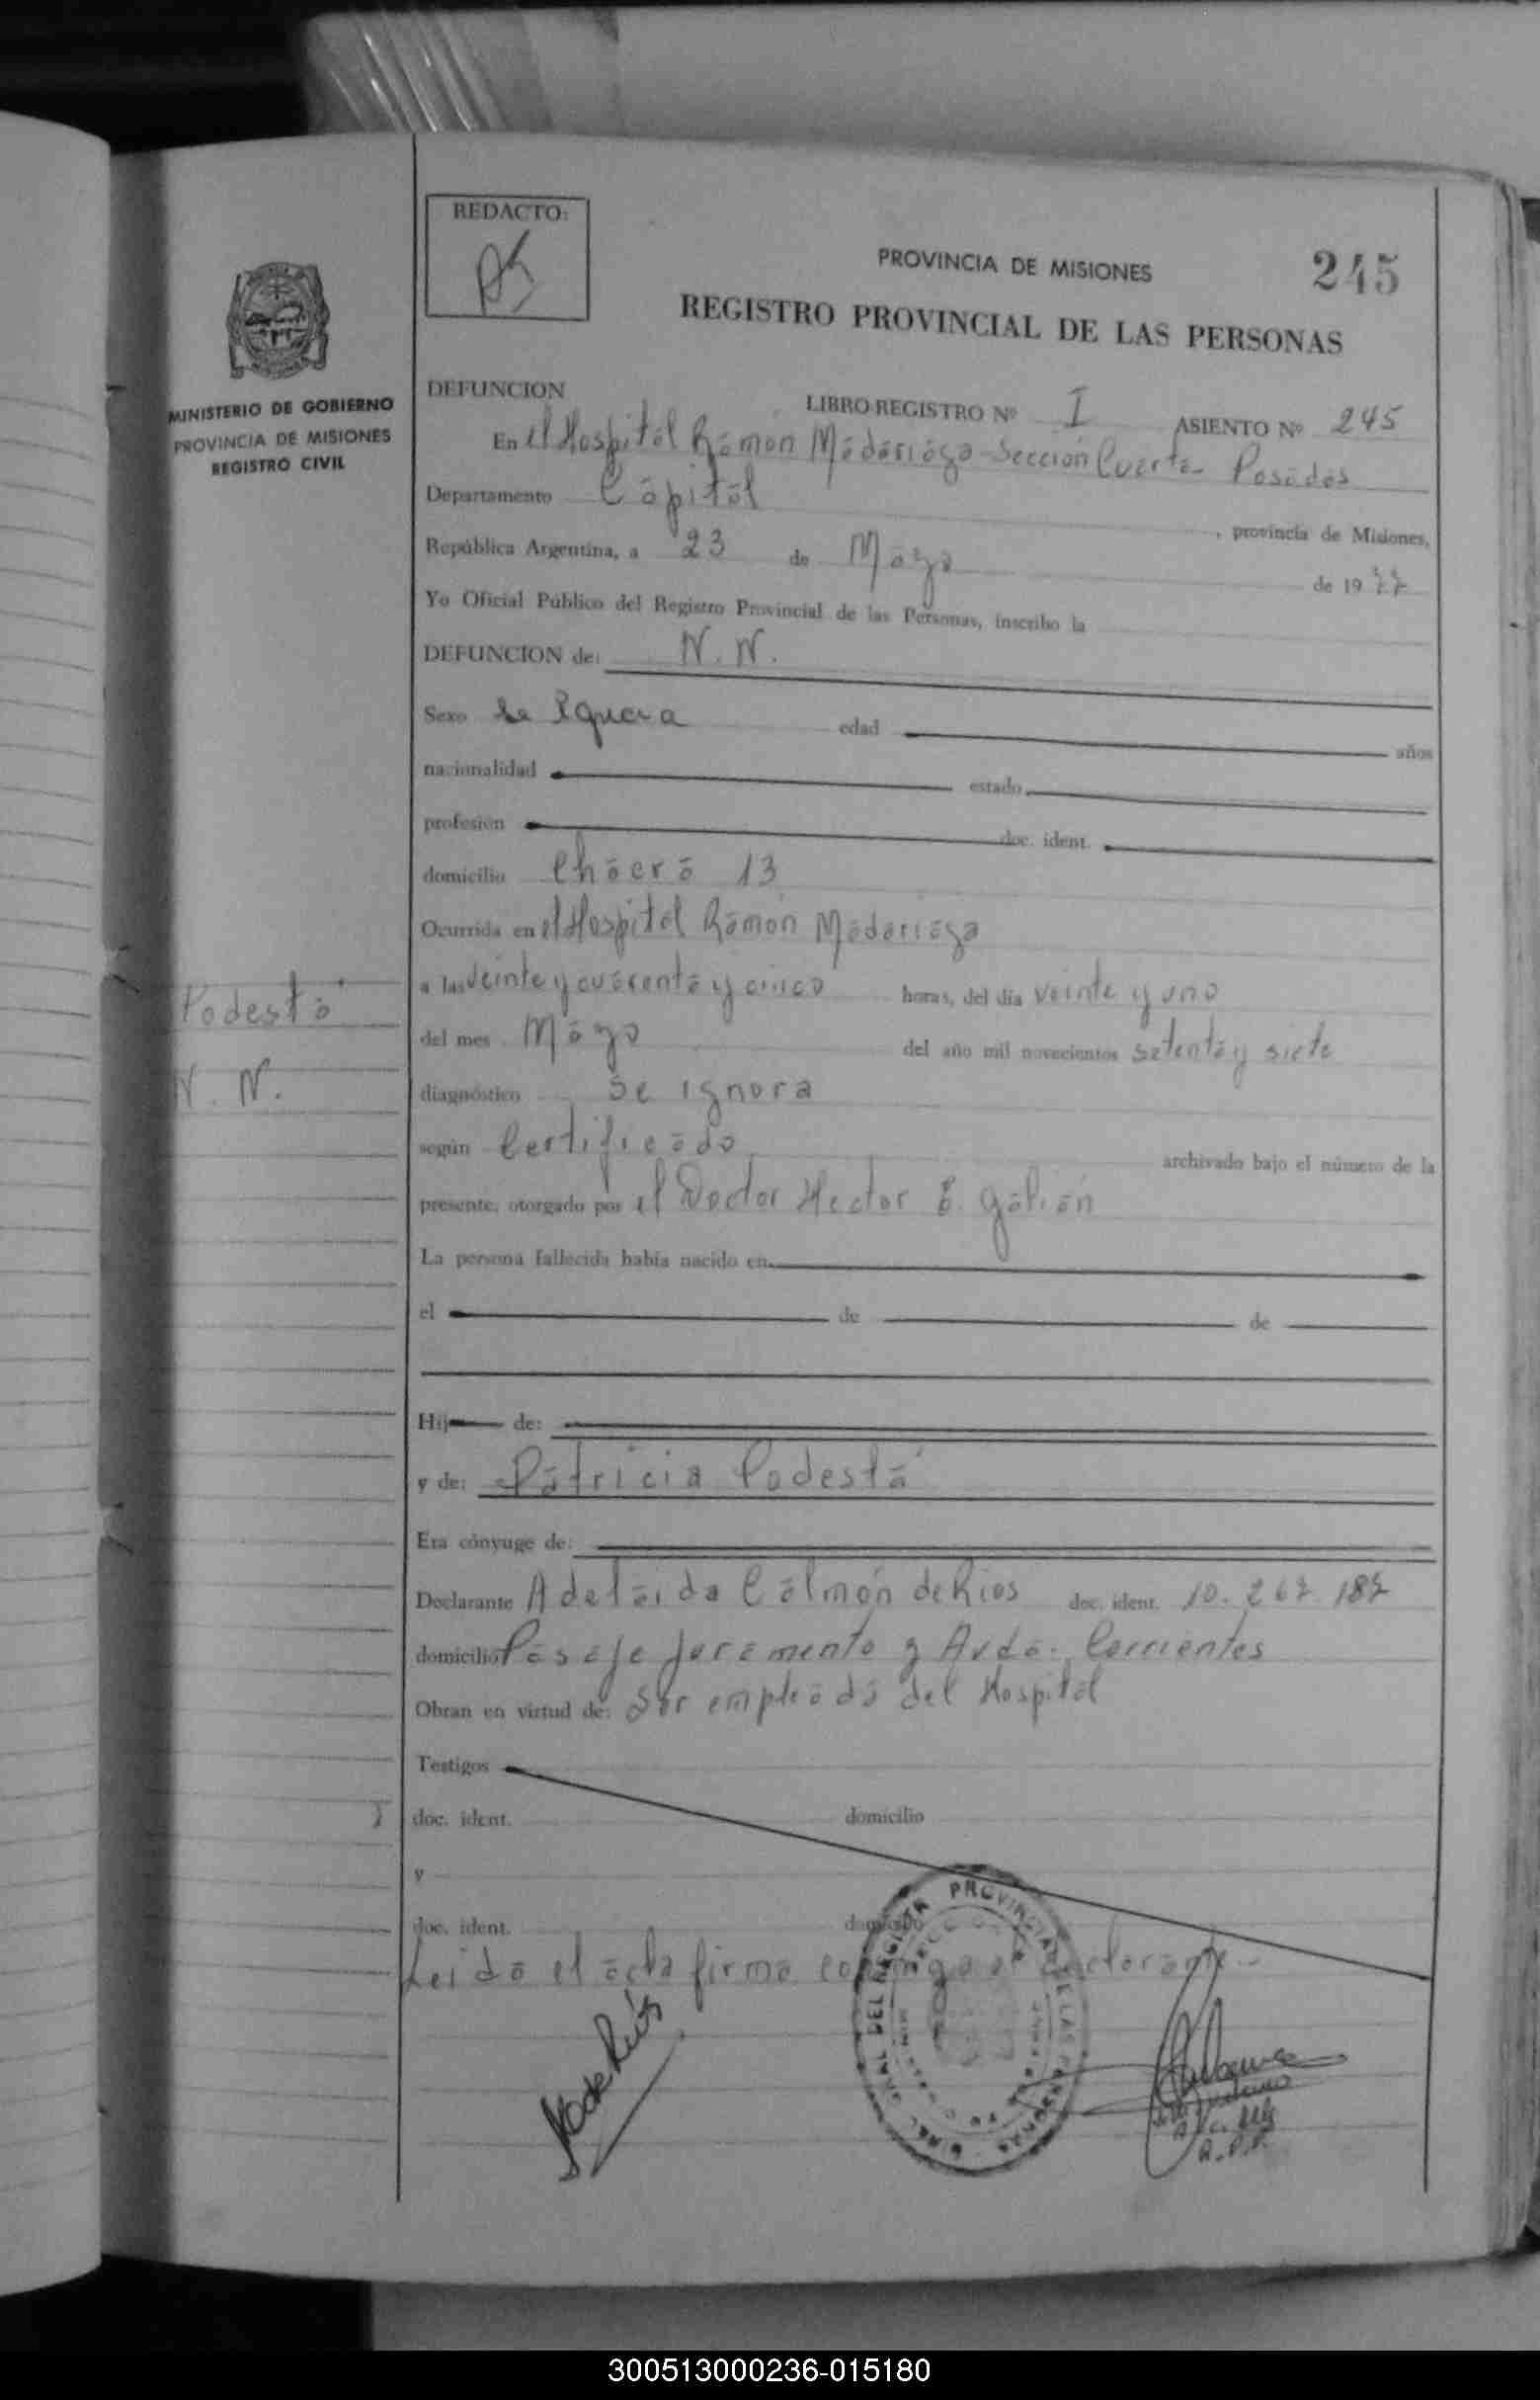 REDACTO:
PROVINCIA DE MISIONES
245
REGISTRO PROVINCIAL DE LAS PERSONAS
MINISTERIO DE GOBIERNO
PROVINCIA DE MISIONES
REGISTRO CIVIL
DEFUNCION
LIBRO-REGISTRO Nº I ASIENTO Nº 245
En el Hospital Ramon Madariaga - Sección Cuarta Posadas
Departamento Capital, provincia de Misiones,
República Argentina, a 23 de Mayo de 1977
Yo Oficial Público del Registro Provincial de las Personas, inscribo la
DEFUNCION de: N. N.
Sexo Se Ignora edad años
nacionalidad estado
profesión doc. ident.
domicilio Chacra 13
Ocurrida en el Hospital Ramon Madariaga
a las veinte y cuarenta y cinco horas, del día veinte y uno
del mes Mayo del año mil novecientos setenta y siete
diagnóstico Se ignora
según Certificado archivado bajo el número de la
presente, otorgado por el Doctor Hector E. Galián
La persona fallecida había nacido en
el de de
Hij de:
y de: Patricia Podestá
Era cónyuge de:
Declarante Adelaida Calmón de Rios doc. ident. 10.267.187
domicilio Pasaje Juramento y Avda. Corrientes
Obran en virtud de: Ser empleada del Hospital
Testigos
doc. ident. domicilio
y
doc. ident. domicilio
Leida el acta firma conmigo el declarante.-
Podestá
N. N.
300513000236-015180